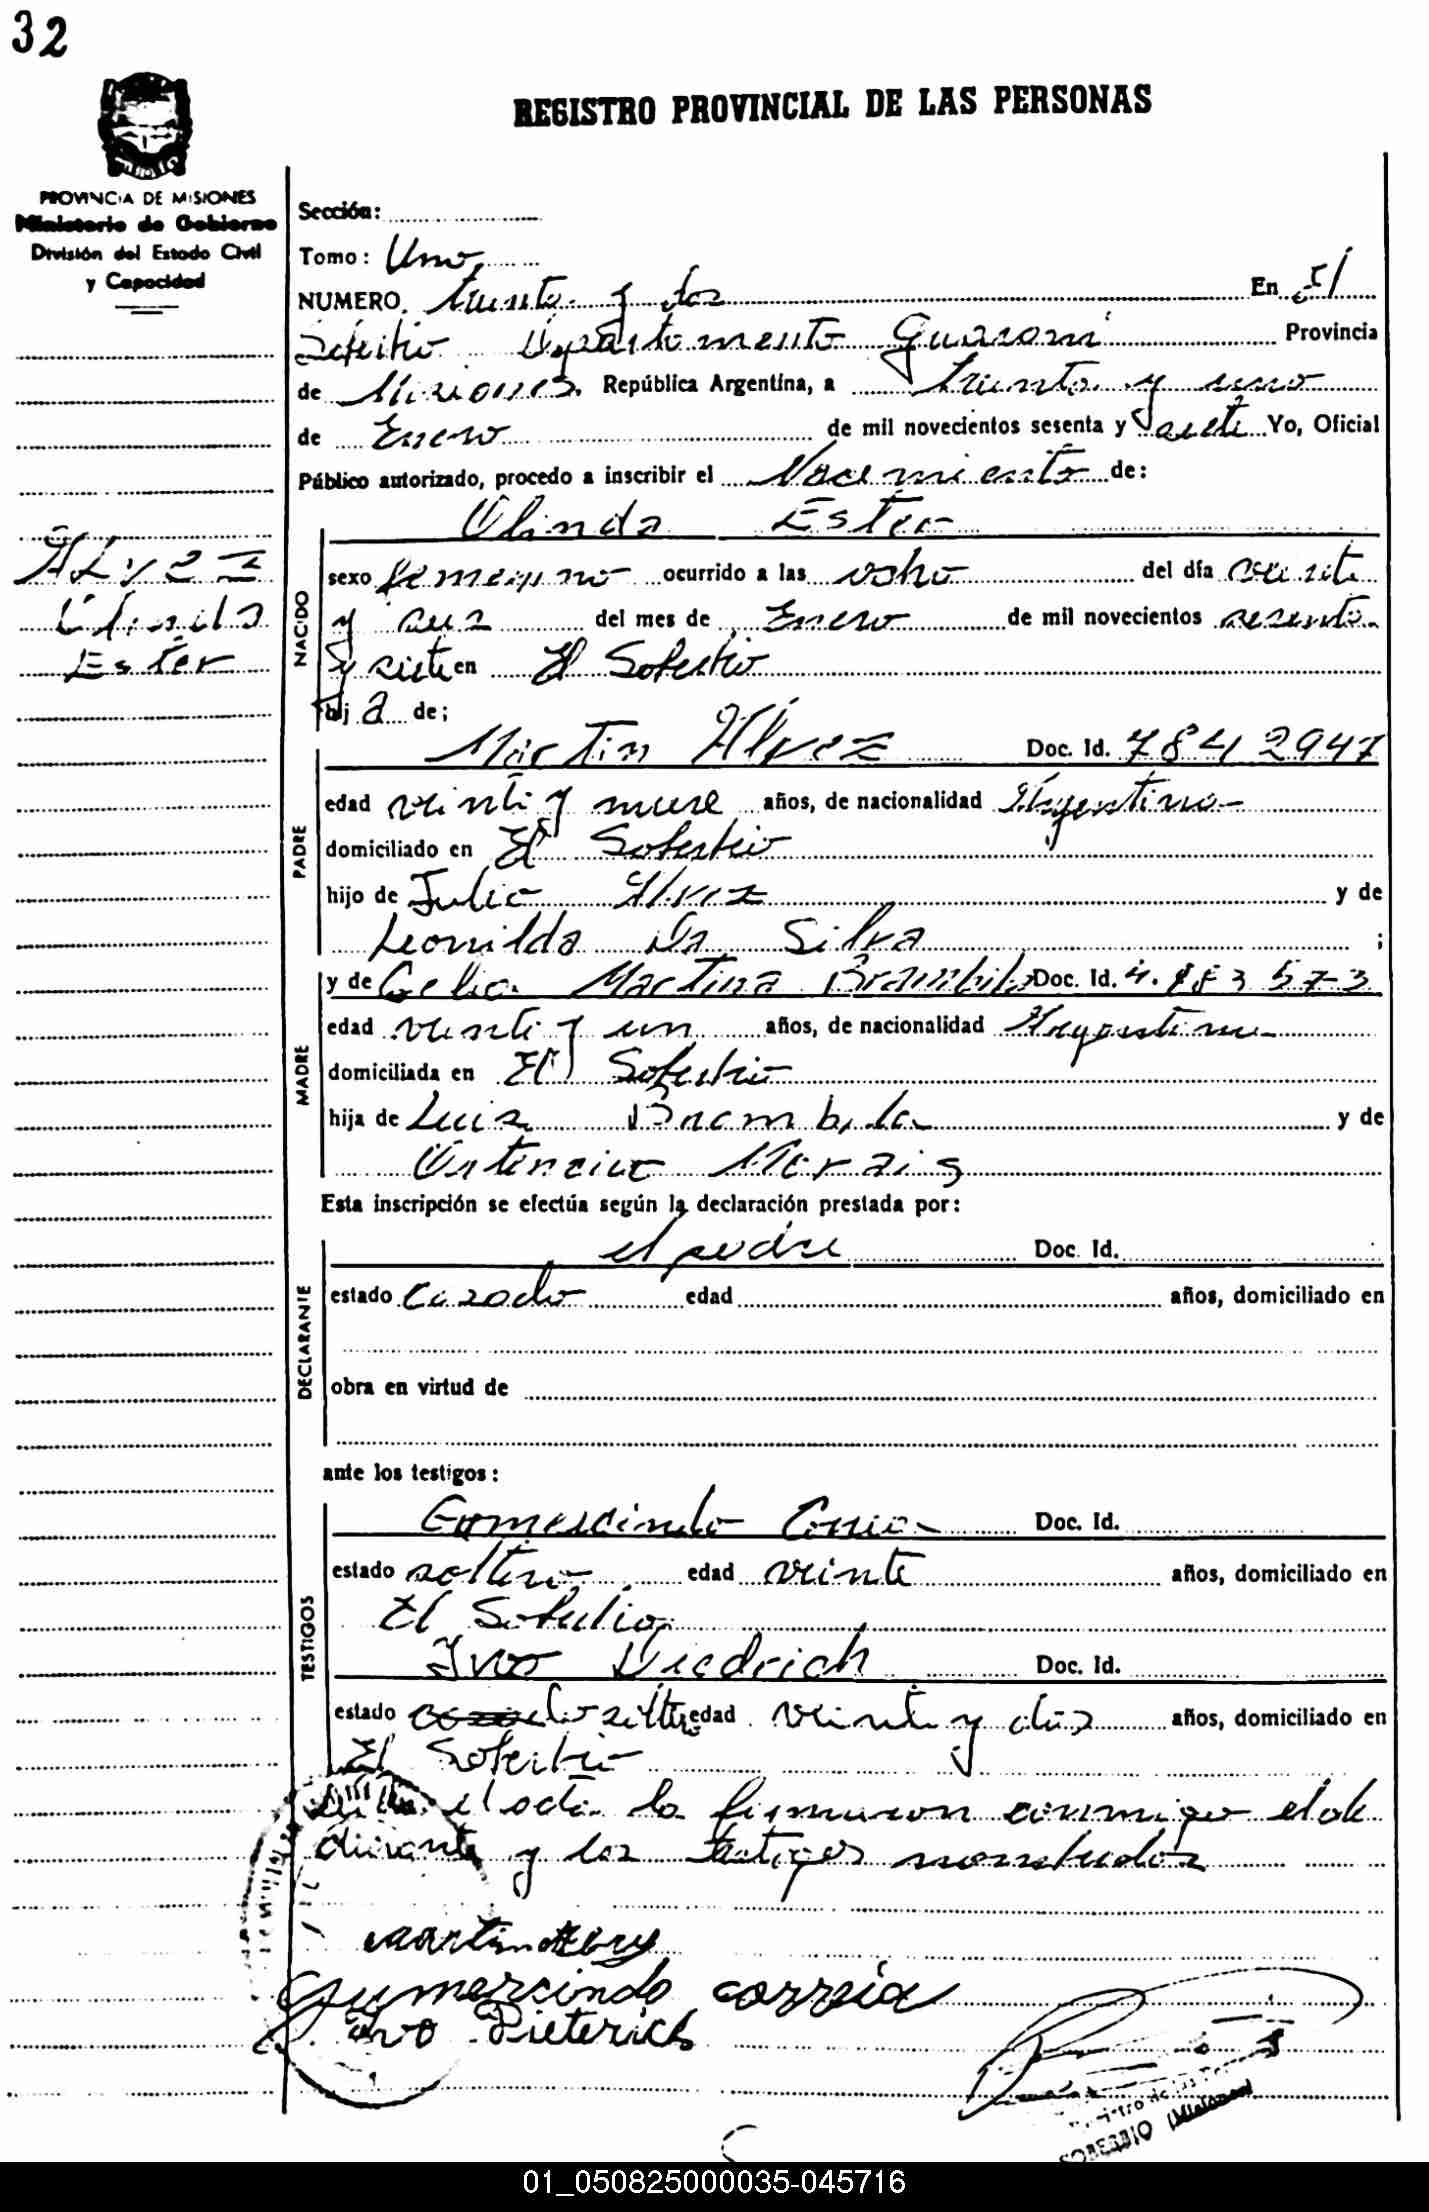 32
REGISTRO PROVINCIAL DE LAS PERSONAS
PROVINCIA DE MISIONES
Ministerio de Gobierno
División del Estado Civil
y Capacidad
Sección:
Tomo: Uno
NUMERO treinta y dos En El
Soberbio Departamento Guaraní Provincia
de Misiones República Argentina, a treinta y uno
de Enero de mil novecientos sesenta y siete Yo, Oficial
Público autorizado, procedo a inscribir el Nacimiento de:
Olinda Ester
ALVEZ
Olinda
Ester
NACIDO
sexo femenino ocurrido a las ocho del día veinte
y seis del mes de Enero de mil novecientos sesenta
y siete en El Soberbio
hija de;
PADRE
Martin Alvez Doc. Id. 7842947
edad veinti y nueve años, de nacionalidad Argentino
domiciliado en El Soberbio
hijo de Julio Alvez y de
Leonilda Da Silva ;
MADRE
y de Celia Martina Brambila Doc. Id. 4.883573
edad veinti y un años, de nacionalidad Argentina
domiciliada en El Soberbio
hija de Luis Brambila y de
Ortencia Morais
Esta inscripción se efectúa según la declaración prestada por:
DECLARANTE
el padre Doc. Id.
estado Casado edad años, domiciliado en
obra en virtud de
ante los testigos:
TESTIGOS
Gomercindo Doc. Id.
estado soltero edad veinte años, domiciliado en
El Soberbio
Ivo Diedrich Doc. Id.
estado casado soltero edad veinti y dos años, domiciliado en
El Soberbio
el acta la firmaron conmigo el de
clarante y los testigos nombrados
Martin
Gumercindo correia
ivo Dieterich
SOBERBIO (Misiones)
01_050825000035-045716